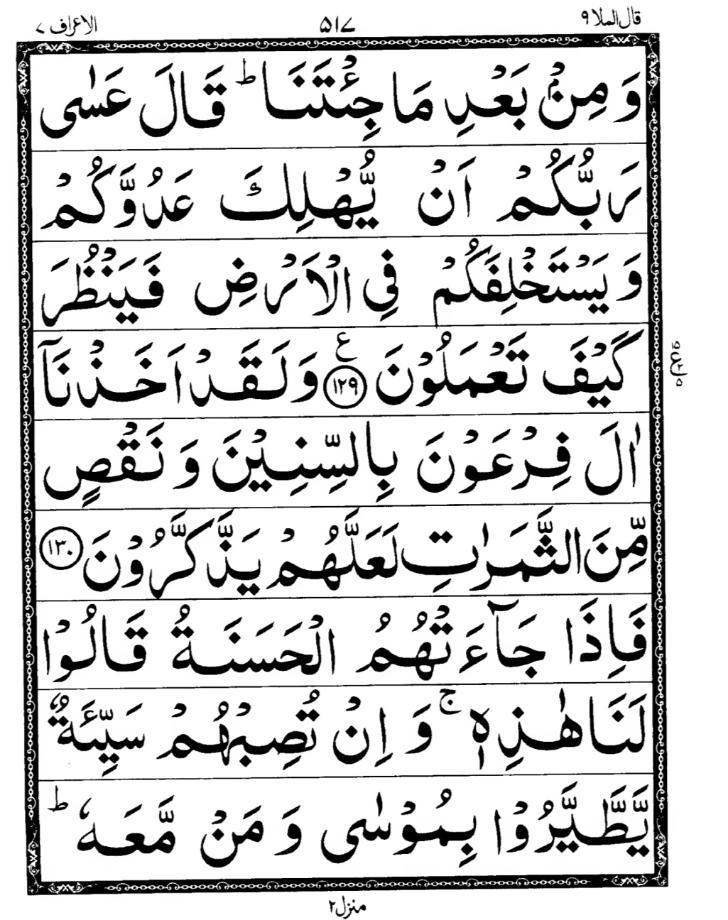 قال الملا ٩ ۵۱۷ الاعراف ٧
وَ مِنْۢ بَعْدِ مَا جِئْتَنَا ؕ قَالَ عَسٰى
رَبُّكُمْ اَنْ يُّهْلِكَ عَدُوَّكُمْ
وَ يَسْتَخْلِفَكُمْ فِي الْاَرْضِ فَيَنْظُرَ
كَيْفَ تَعْمَلُوْنَ ࣖ ﴿۱۲۹﴾ وَلَقَدْ اَخَذْنَاۤ
اٰلَ فِرْعَوْنَ بِالسِّنِيْنَ وَ نَقْصٍ
مِّنَ الثَّمَرٰتِ لَعَلَّهُمْ يَذَّكَّرُوْنَ ﴿۱۳۰﴾
فَاِذَا جَآءَتْهُمُ الْحَسَنَةُ قَالُوْا
لَنَا هٰذِهٖ ۚ وَ اِنْ تُصِبْهُمْ سَيِّئَةٌ
يَّطَّيَّرُوْا بِمُوْسٰى وَ مَنْ مَّعَهٗ ؕ
منزل ٢